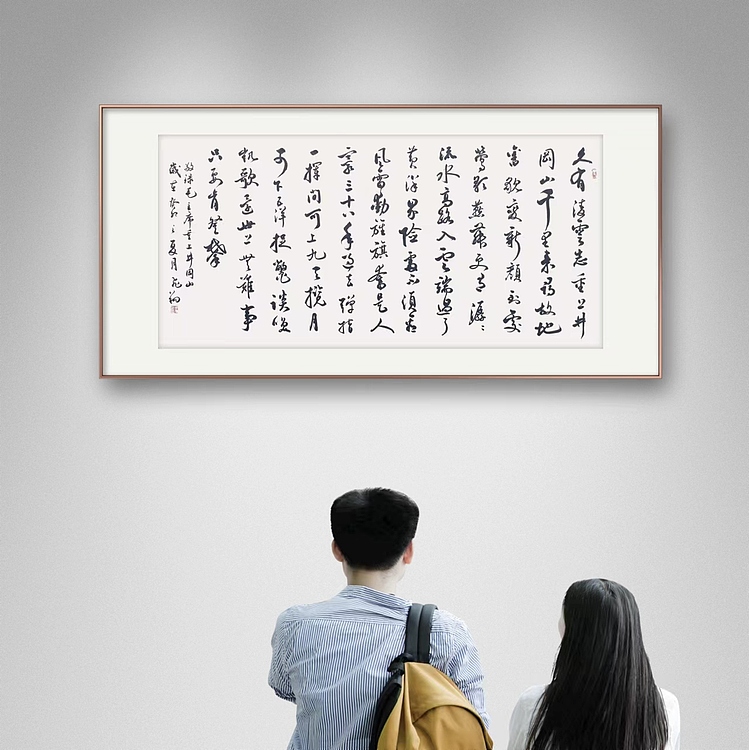 久有凌雲志重上井
岡山千里來尋故地
舊貌變新顏到處
鶯歌燕舞更有潺潺
流水高路入雲端過了
黃洋界險處不須看
風雷動旌旗奮是人
寰三十八年過去彈指
一揮間可上九天攬月
可下五洋捉鱉談笑
凱歌還世上無難事
只要肯登攀
敬录毛主席重上井岡山
歲在癸卯之夏月